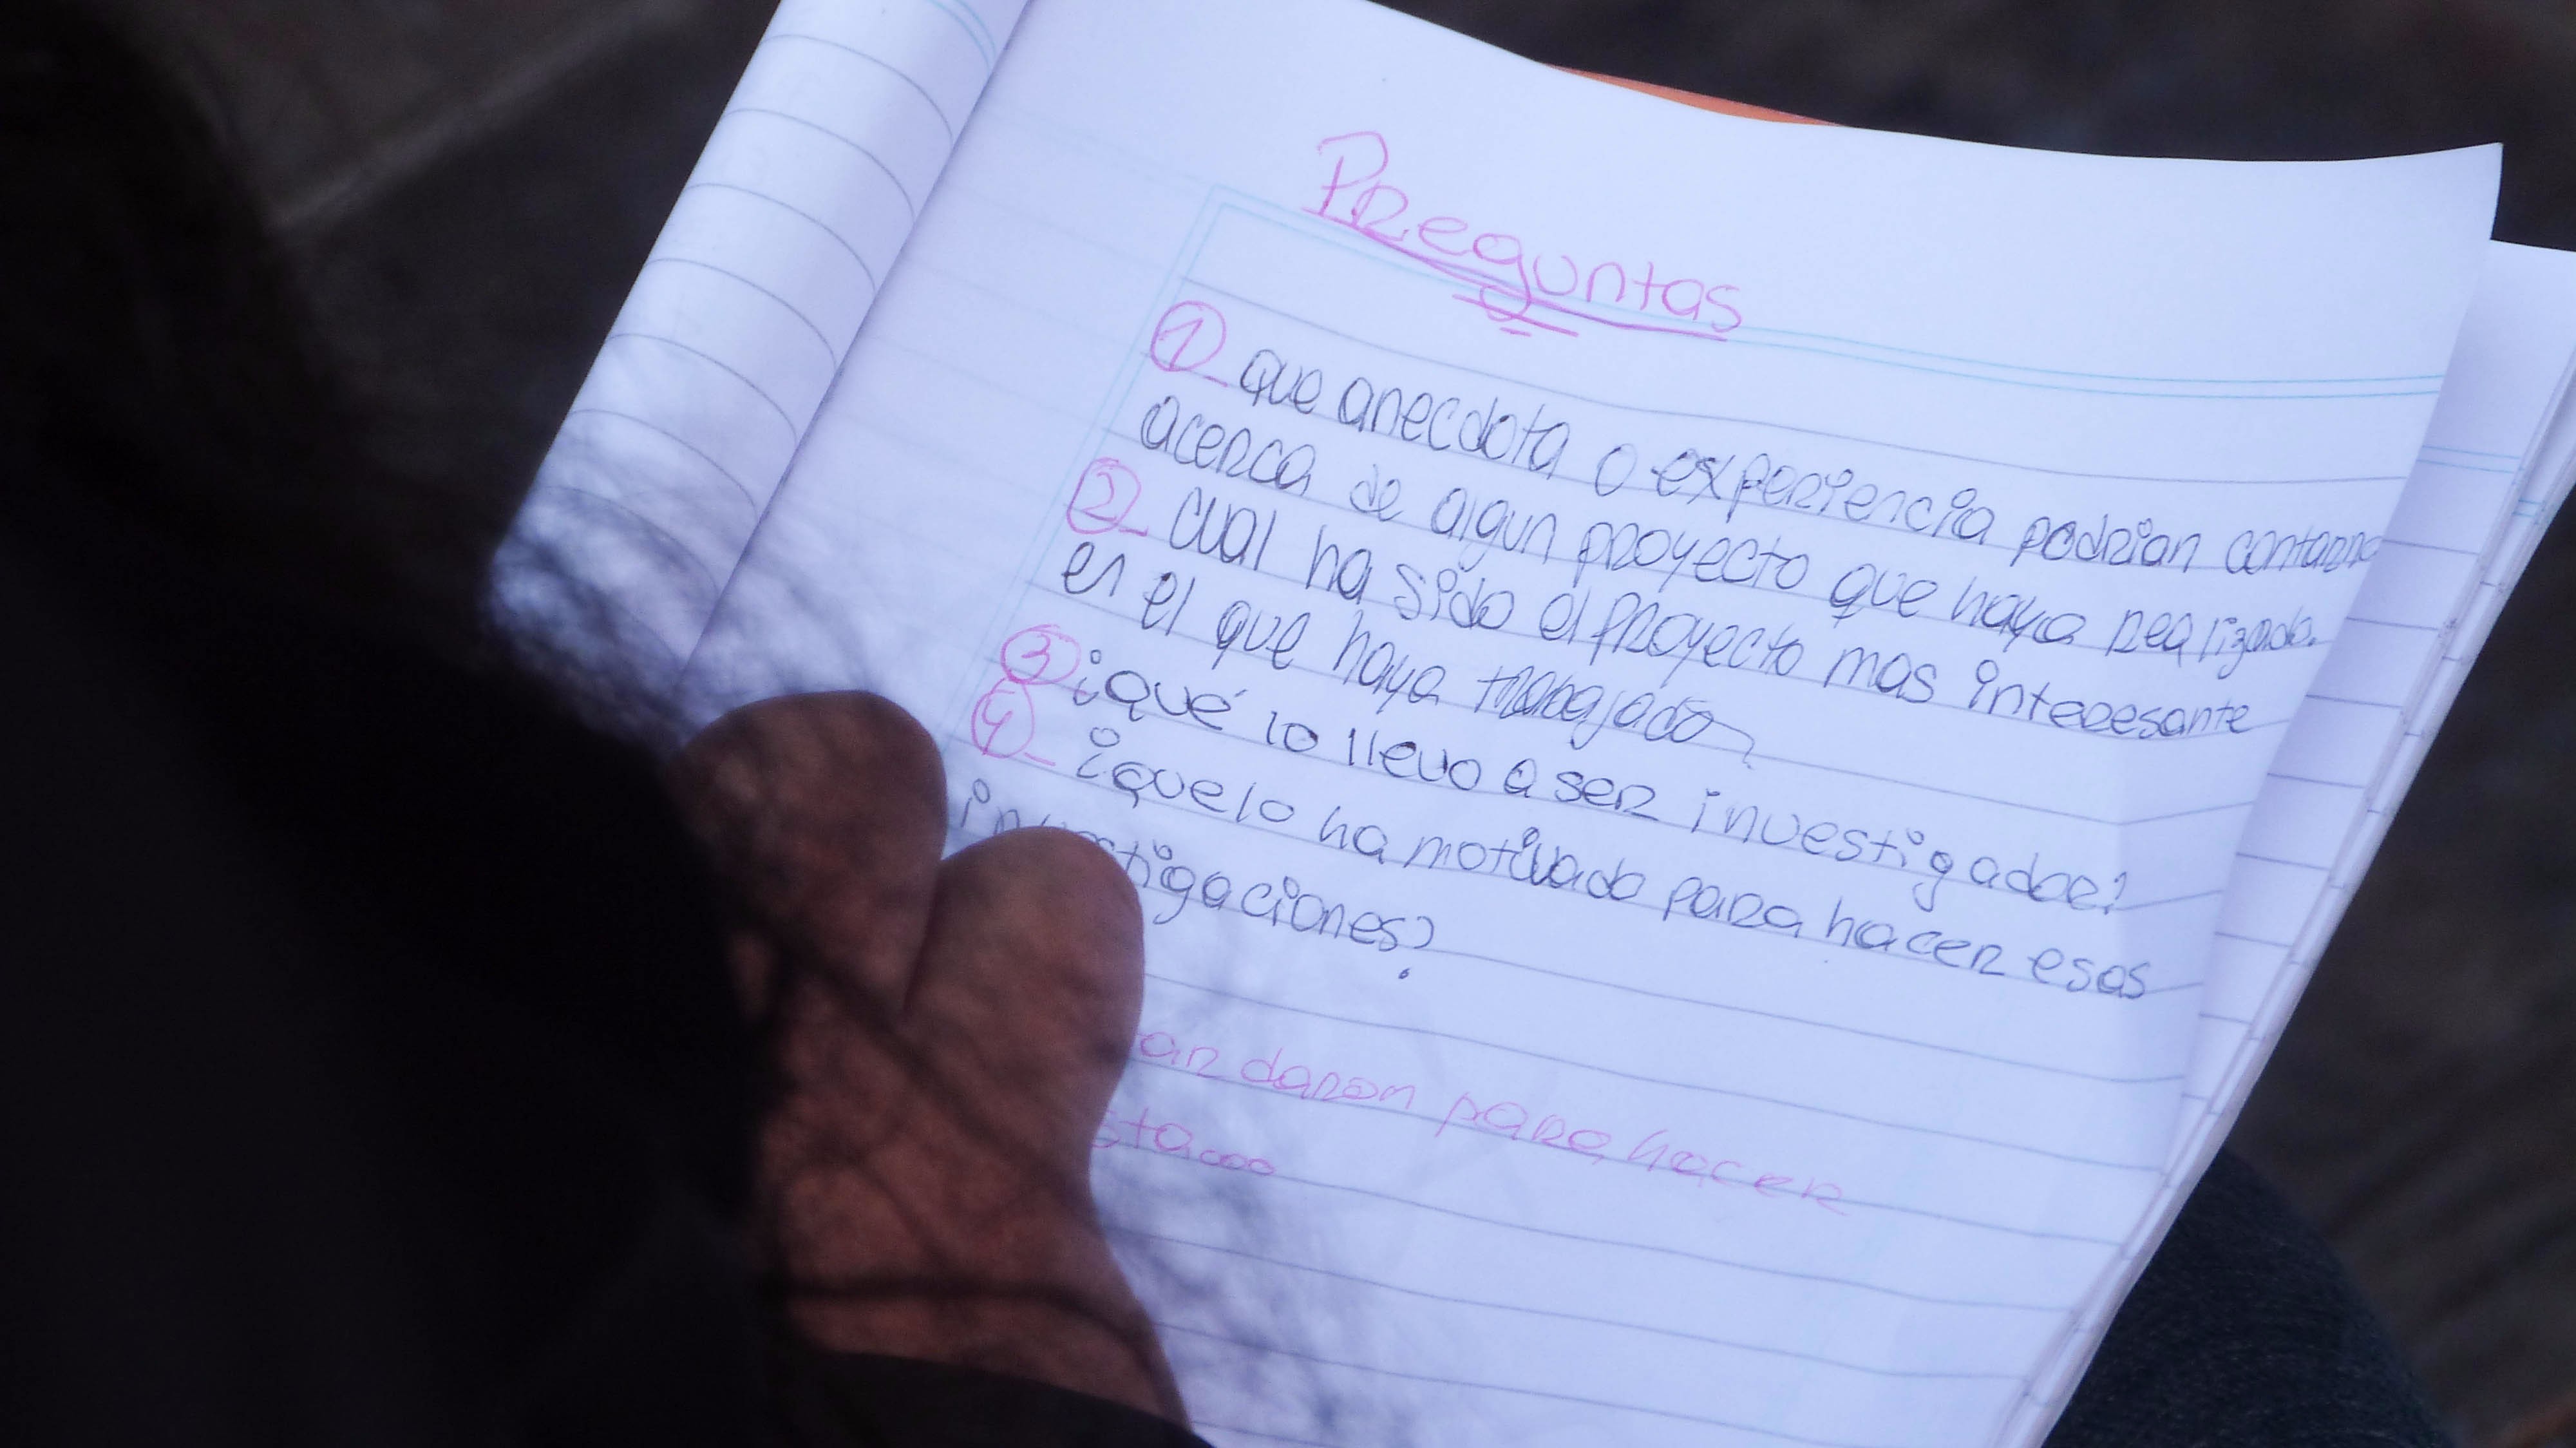 Preguntas
1_ que anecdota o experiencia podrian
acerca de algun proyecto que haya realizado.
2_ cual ha sido el proyecto mas interesante
en el que haya trabajado?
3 ¿qué lo llevo a ser investigador?
4_ ¿que lo ha motivado para hacer esas
investigaciones?
para hacer